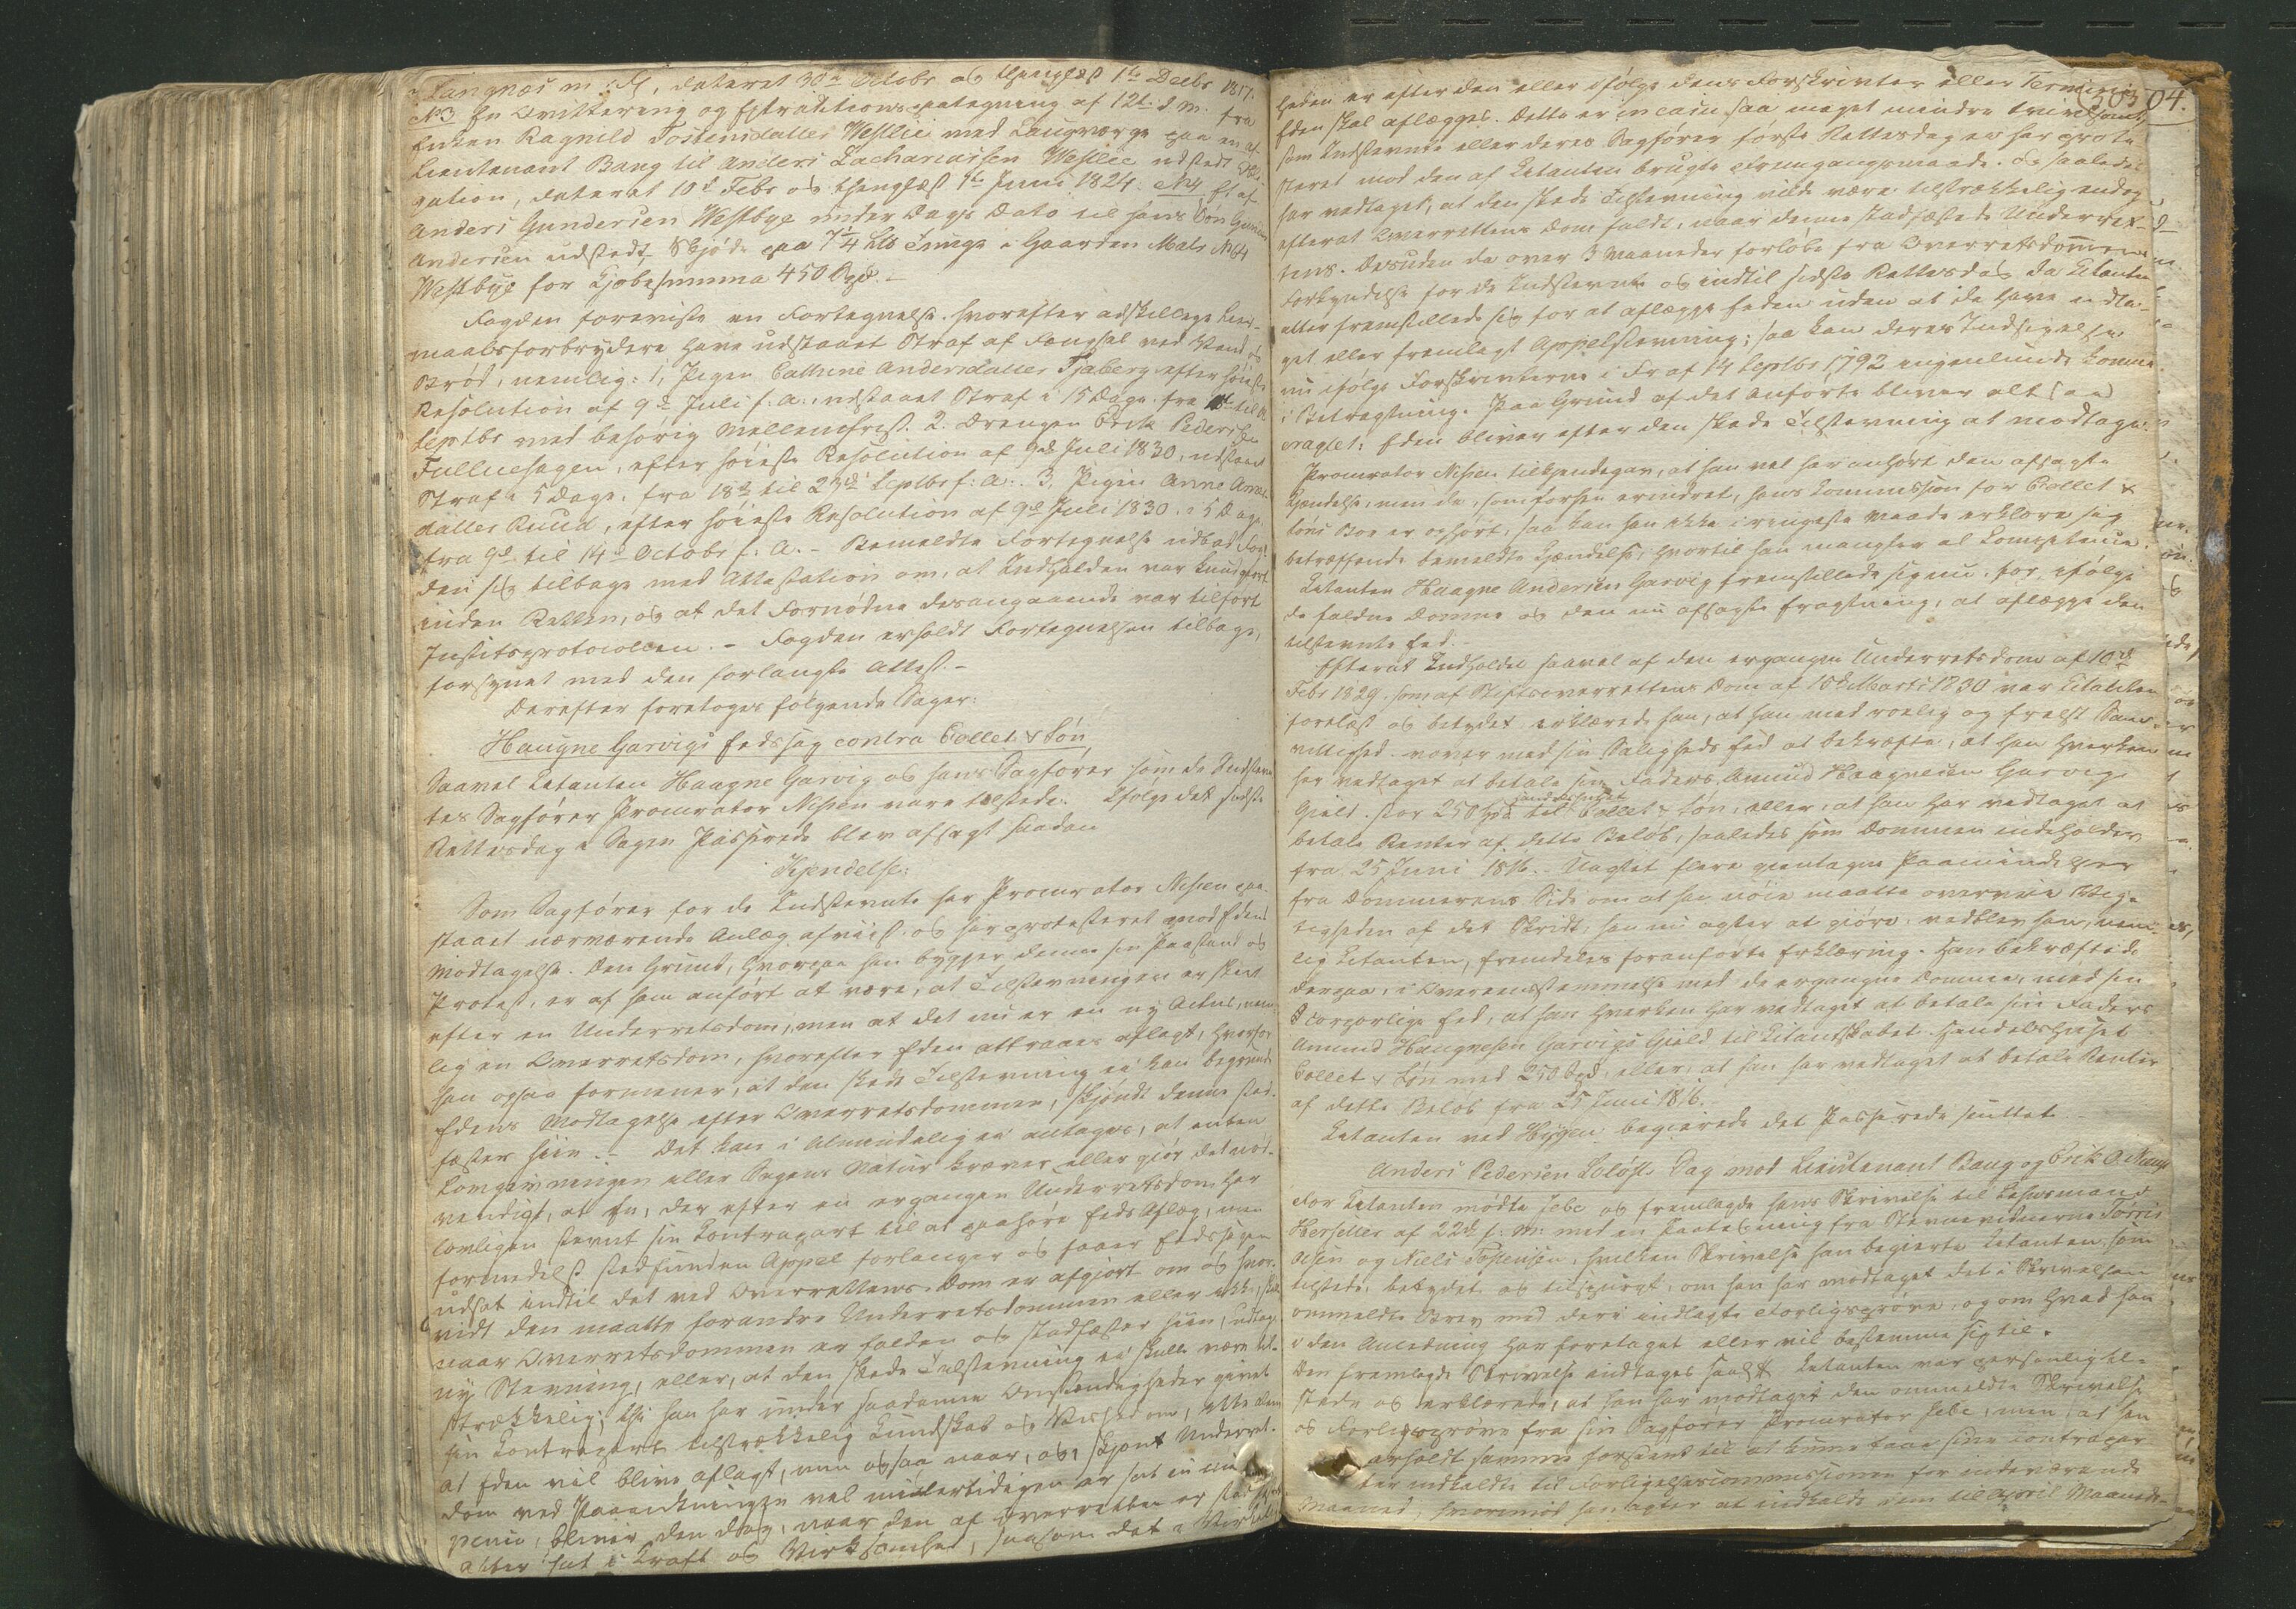 Langnæs m: fl, dateret 30te Octobr og thinglæst 1te Decbr 1817.
No 3 En Qvittering og Extraditionspategning af 12t d. m. fra
Enken Ragnild Tostensdatter Westlie med Laugværge paa en af
Lieutenant Bang til Anders Zachariassen Westlie udstedt Obli-
gation, dateret 10d Febr og thinglæst 1te Juni 1824. No 4 Et af
Anders Gundersen Westbye under Dags Dato til hans Søn Gunder
Andersen udstedt Skjøde paa 7 1/4 Lts Tunge i Gaarden Matr No 64
Westbye for Kjøbesumma 450 Spd. –
Fogden foreviste en Fortegnelse hvorefter adskillige Leier-
maalsforbrydere have udstaaet Straf af Fængsel ved Vand og
Brød, nemlig: 1, Pigen Cathrine Andersdatter Tjaberg efter høieste
Resolution af 9d Juli f: a:, udstaaet Straf i 15 Dage fra til
Septbr med behørig Mellemfrist. 2. Drengen Erik Pedersen
Fulluehagen, efter høieste Resolution af 9de Juli 1830, udstaaet
Straf i 5 Dage, fra 18d til 23d Septbr f: a:. 3, Pigen Anne
datter Ruud, efter høieste Resolution af 9de Juli 1830 i 5 Dage
fra 9d til 14d Octobr f: A. – Bemeldte Fortegnelse udbad Fog-
den sig tilbage med Attestation om, at Indholden var kundgjort
inden Retten, og at det Fornødne desangaaende var tilført
Justitsprotocollen. – Fogden erholdt Fortegnelsen tilbage,
forsynet med den forlangte Attest. –
Derefter foretoges følgende Sager:
Haagne Garvigs Edssag contra Collet & Søn
Saavel Citanten Haagne Garvig og hans Sagfører som de Indstevn-
tes Sagfører Procurator Nissen vare tilstede. Ifølge det sidste
Rettesdag i Sagen Passerede blev afsagt saadan
Kjendelse:
Som Sagfører for de Indstevnte har Procurator Nissen paa-
staaet nærværende Anlæg afviist og har protesteret mod Edens
Modtagelse. Den Grund, hvorpaa han bygger denne sin Paastand og
Protest, er af ham anført at være, at Tilstevningen er skeet
efter en Underretsdom, men at det nu er en ny Actus, nem-
lig en Overretsdom, hvorefter Eden attraaes aflagt, hvorfor
han ogsaa formener, at den skede Tilstevning ei kan begrunde
Edens Modtagelse efter Overretsdommen, skjøndt denne stad-
fæster hiin. – Det kan i Almindelig ei antages, at enten
Lovgivningen eller Sagens Natur kræver eller gjør det nød-
vendigt, at En, der efter en ergangen Underretsdom har
lovligen stevnt sin Contrapart til at paahøre Eds Aflæg, men
formedelst stedfunden Appel forlanger og faaer Edssagen
udsat indtil det ved Overrettens Dom er afgjort om og hvor-
vidt den maatte forandre Underretsdommen eller ikke, skal
naar Overretsdommen er falden og stadfæster hiin, udtage
ny Stevning, eller, at den skede Tilstevning ei skulle være til-
strækkelig; thi han har under saadanne Omstændigheder givet
sin Contrapart tilstrækkelig Kundskab og Vished om, ikke alene
at Eden vil blive aflagt, men ogsaa naar, og, skjønt Underrets-
dom ved Paaankningen vel midlertidigen er sat in
, bliver den dog, naar den af Overretten er
atter sat i Kraft og Virksomhed, saasom det
303 04.
heden er efter den eller ifølge dens Forskrivter eller Termini
Eden skal aflægges. Dette er in casu saa meget mindre tvivlsomt
som Indstevnte eller deres Sagfører første Rettesdag ei har prote-
steret mod den af Citanten brugte Fremgangsmaade. og saaledes
har vedtaget, at den skede Tilstevning vilde være tilstrækkelig endog
efterat Overrettens Dom faldt, naar denne stadfæstede Underret-
tens. Desuden da over 3 Maaneder forløbe fra Overretsdommens
Forkyndelse for de Indstevnte og indtil sidste Rettesdag da Citanten
atter fremstillede sig for at aflægge Eden uden at de have udta-
get eller fremlagt Appelstevning; saa kan deres Indsigelse
nu ifølge Forskrivterne i Fr af 14 Septbr 1792 ingenlunde komme
i Betragtning. Paa Grund af det Anførte bliver alt(saa)
eragtet: Eden bliver efter den skede Tilstevning at modtage.
Procurator Nissen tilkjendegav, at han vel har anhørt den afsagte
Kjendelse, men da, som forhen erindret, hans Commission for Collet &
Søns Boe er ophørt, saa kan han ikke i ringeste Maade erklære sig
betræffende bemeldte Kjendelse, hvortil han mangler al Competence.
Citanten Haagne Andersen Garvig fremstillede sig nu for, ifølge
de faldne Domme og den nu afsagte Eragtning, at aflægge den
tilstevnte Ed.
Efterat Indholdet saavel af den ergangne Underretsdom af 10d
Febr 1829. som af Stiftsoverrettens Dom af 15d Marts 1830 var Citanten
forelæst og betydet erklærede han, at han med roelig og frelst Sam-
vittighed vover med sin Saligheds Ed at bekræfte, at han hverken
har vedtaget at betale sin Faders, Amund Haagnesen Garvigs
Gjeld stor 250 Spd til Handelshuset Collet & Søn, eller, at han har vedtaget at
betale Renter af dette Beløb, saaledes som Dommen indeholder
fra 25 Juni 1816. – Uagtet flere gjentagne Paamindelser
fra Dommerens Side om at han nøie maatte overveie Vig-
tigheden af det Skridt, han nu agter at gjøre vedblev han, nem-
lig Citanten, fremdeles foranførte Erklæring. Han bekræftede
derpaa, i Overeensstemmelse med de ergangne Domme, med sin
corporlige Ed, at han hverken har vedtaget at betale sin Faders
Amund Haagnesen Garvigs Gjeld til Citantskabet Handelshuset
Collet & Søn med 250 Spd, eller, at han har vedtaget at betale Renter
af dette Beløb fra 25 Juni 1816.
Citanten ved Høyen begjerede det Passerede sluttet. –
Anders Pedersen Sag mod Lieutenant Bang og Erik O.
For Citanten mødte Sebe og fremlagde hans Skrivelse til Lehnsmand
Herseller af 22d f: m: med en Paategning fra Stevnevidnerne Torris
Olsen og Niels, hvilken Skrivelse han begjerte Citanten, som
tilstede, betydet og tilspurgt, om han har modtaget det i Skrivelsen
ommeldte Brev med deri indlagte Forligsprøve, og om hvad han
i den Anledning har foretaget eller vil bestemme sig til.
Den fremlagde Skrivelse indtages Citanten var personlig til-
stede og erklærede, at han har modtaget den ommeldte Skrivelse
og Forligsprøve fra sin Sagfører Procurator Sebe, men, at han
erholdt samme forseent til at kunne faae sine Contrapar-
ter indkaldte til Forligelsescommissionen for indeværende
Maaned, hvorimod han agter at indkalde dem til April Maaneds-